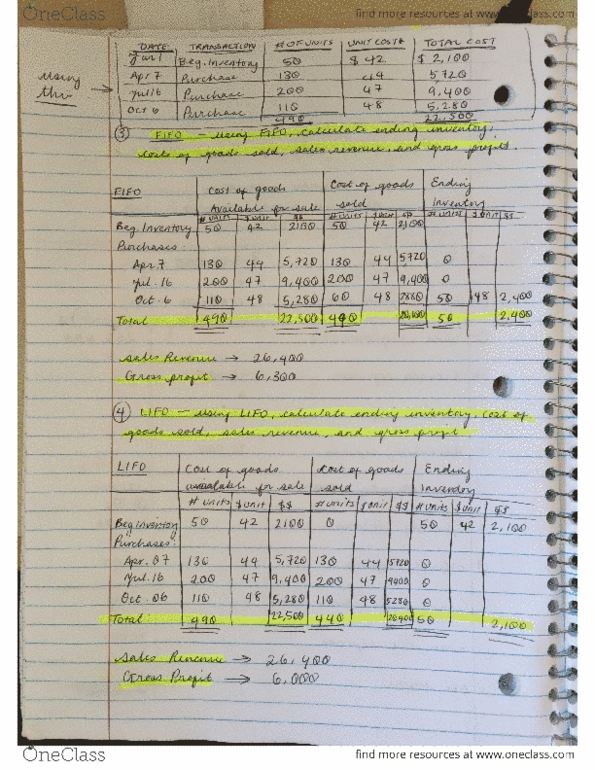 OneClass
find more resources at www.oneclass.com
DATE TRANSACTION # OF UNITS UNIT COST# TOTAL COST
Jan 1 Beg. Inventory 50 $ 42 $ 2,100
Apr 7 Purchase 130 44 5,720
Jul 16 Purchase 200 47 9,400
Oct 6 Purchase 110 48 5,280
490 22,500
using this →
③ FIFO – using FIFO, calculate ending inventory,
costs of goods sold, sales revenue, and gross profit.
FIFO Cost of goods Available for sale Cost of goods sold Ending Inventory
# UNITS $ UNIT $$ # UNITS $ UNIT $$ # UNITS $ UNIT $$
Beg. Inventory 50 42 2100 50 42 2100
Purchases
Apr. 7 130 44 5,720 130 44 5720 0
Jul. 16 200 47 9,400 200 47 9,400 0
Oct. 6 110 48 5,280 60 48 2880 50 48 2,400
Total 490 22,500 440 50 2,400
Sales Revenue → 26,400
Gross profit → 6,300
④ LIFO – using LIFO, calculate ending inventory, cost of
goods sold, sales revenue, and gross profit
LIFO Cost of goods available for sale Cost of goods sold Ending Inventory
# units $ unit $$ # units $ unit $$ # units $ unit $$
Beg Inventory 50 42 2100 0 50 42 2,100
Purchases:
Apr. 07 130 44 5,720 130 44 5720 0
Jul. 16 200 47 9,400 200 47 9400 0
Oct. 06 110 48 5,280 110 48 5280 0
Total: 490 22,500 440 20400 50 2,100
Sales Revenue → 26,400
Gross Profit → 6,000
OneClass
find more resources at www.oneclass.com